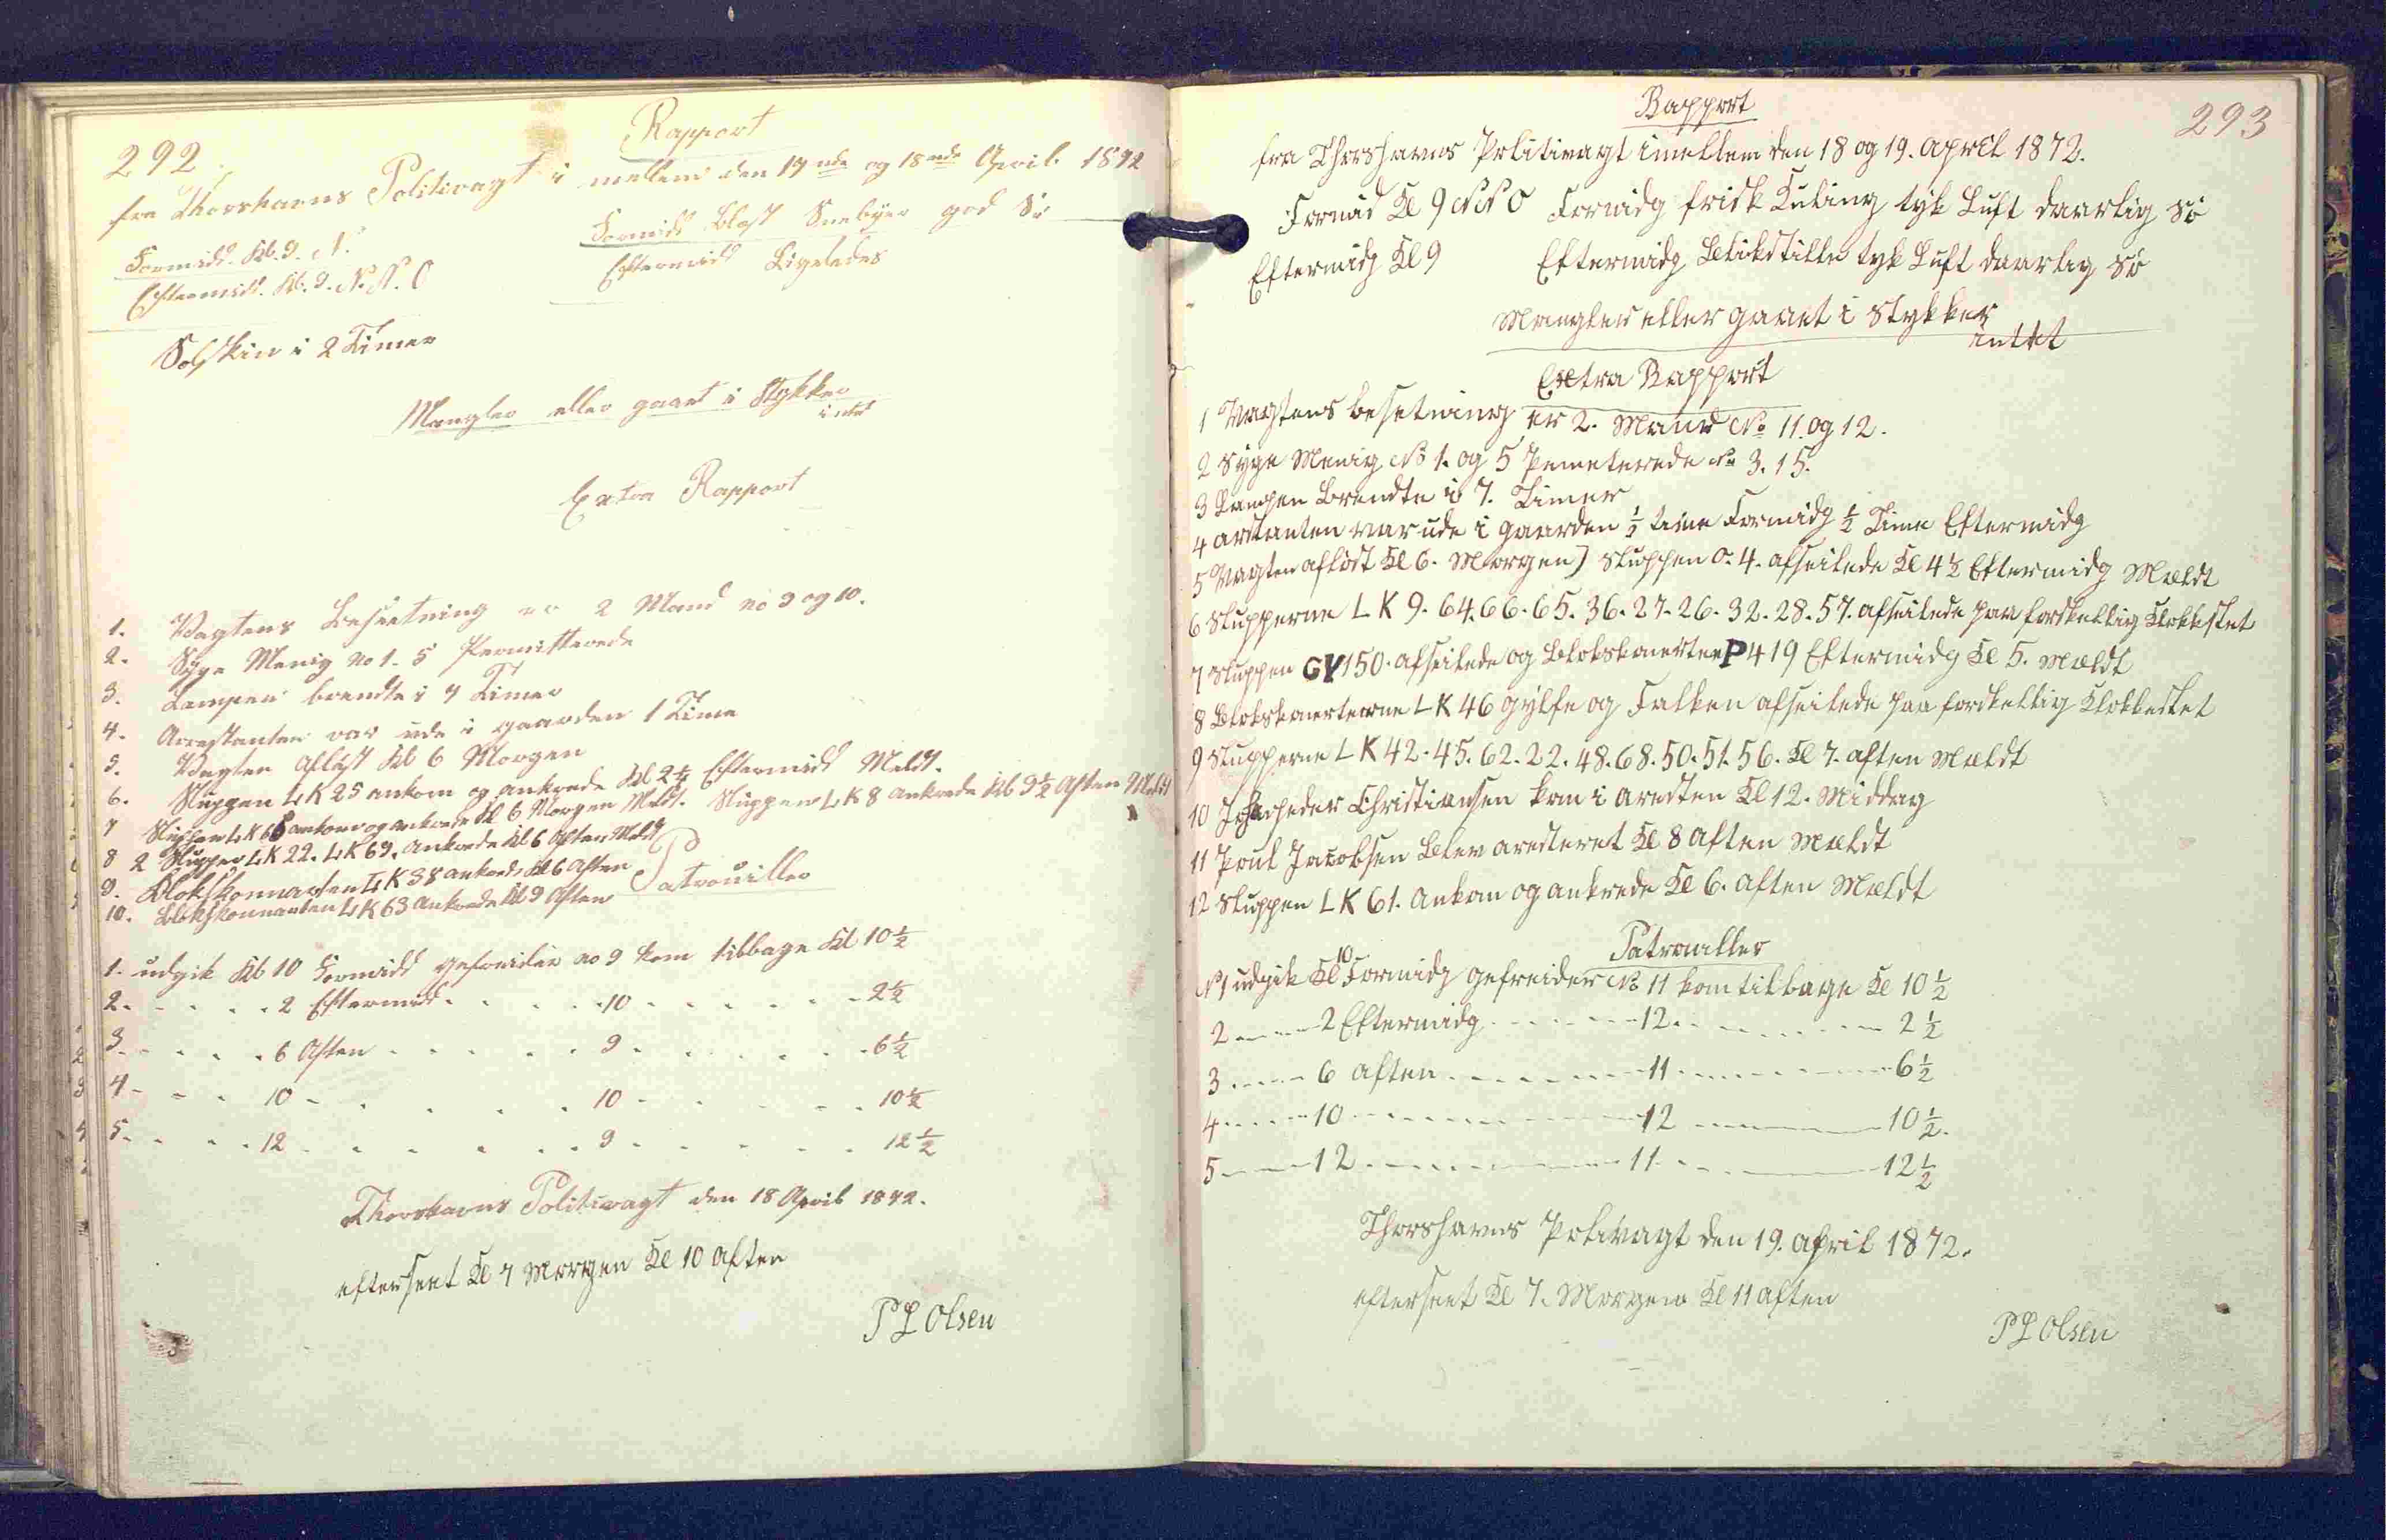 292.
Rapport
fra Thorshavns Politivagt i mellem den 17nde og 18nde April 1872
Formidd. Kl. 9. N.
Formidd Blæst Snebyer god Sö
Eftermidd. Kl. 9. N. N. O
Eftermidd Ligeledes
Solskin i 2 Timer
Mangler eller gaaet i Stykker
intet
Extra Rapport
1. Vagtens Besætning er 2 Mand no 9 og 10.
2. Syge Menig no 1. 5 Permitterede
3. Lampen brendte i 7 Timer
4. Arrestanten var ude i gaarden 1 Time
5. Vagten Aflöst Kl 6 Morgen
6. Sluppen LK 25 ankom og ankrede Kl 2½ Eftermidd Meldt.
7 Sluppen LK 66 ankom og ankrede Kl 6 Morgen Meldt. Sluppen LK 8 ankrede Kl 9½ Aften Meldt
8 2 Slupper LK 22. LK 69. ankrede Kl 6 Aften Meldt
9. Blokskonnarten LK 38 ankrede Kl 6 Aften
10. Blokskonnarten LK 63 ankrede Kl 9 Aften
Patrouiller
1. udgik Kl 10 Formidd gefreider no 9 kom tilbage Kl 10½
2. . . . . 2 Eftermidd. . . . .10 . . . . . . 2½
3. . . . . 6 Aften . . . . . 9 . . . . . . 6½
4 - - . 10 - . . . . . 10 - . . . . . 10½
5. . . . .12 . . . . . . 9 . . . . . . 12½
Thorshavns Politivagt den 18 April 1872.
efterseet Kl 7 Morgen Kl 10 Aften
P L Olsen
293
Rapport
fra Thorshavns Politivagt imellem den 18 og 19. April 1872.
Formid Kl 9 N N O Formidg frisk Kuling tyk Luft daarlig Sö
Eftermidg Kl 9 Eftermidg Blikstille tyk Luft daarlig Sö
Mangler eller gaaet i Stykker
intet
Extra Rapport
1 Vagtens besetning er 2. Mand No 11. og 12.
2 Syge Menig No 1. og 5 Pemeterede No 3. 15.
3 Lampen Brendte i 7. Timer
4 arstanten var ude i gaarden ½ time Formidg ½ Time Eftermidg
5 Vagten aflöst Kl 6. Morgen) Sluppen O. 4. afseilede Kl 4½ Eftermidg Mældt
6 Slupperne LK 9. 64. 66. 65. 36. 27. 26. 32. 28. 57. afseilede paa forskellig Klokkslet
7 Sluppen GY 150. afseilede og Blokskonerten P 419 Eftermidg Kl 5. Mældt
8 Blokskonerterne LK 46 gylfe og Falken afseilede paa forskellig Klokkeslet
9 Slupperne LK 42. 45. 62. 22. 48. 68. 50. 51. 56. Kl 7. aften Mældt
10 Christiansen kom i aresten Kl 12. Middag
11 Poul Jacobsen Blev aresteret Kl 8 aften Mældt
12 Sluppen LK 61. Ankom og ankrede Kl 6. aften Mældt
Patrouiller
No 1 udgik Kl 10 Formidg gefreider No 11 kom tilbage Kl 10½
2 - - - - 2 Eftermidg - - - - - 12. - - - - - - 2½
3 - - - - 6 aften - - - - - - 11 - - - - - - 6½
4 - - - - 10 - - - - - - - - 12 - - - - - - 10½.
5 - - - - 12 - - - - - - - - 11 - - - - - - 12½
Thorshavns Polivagt den 19. April 1872.
efterseet Kl 7. Morgen Kl 11 aften
P L Olsen